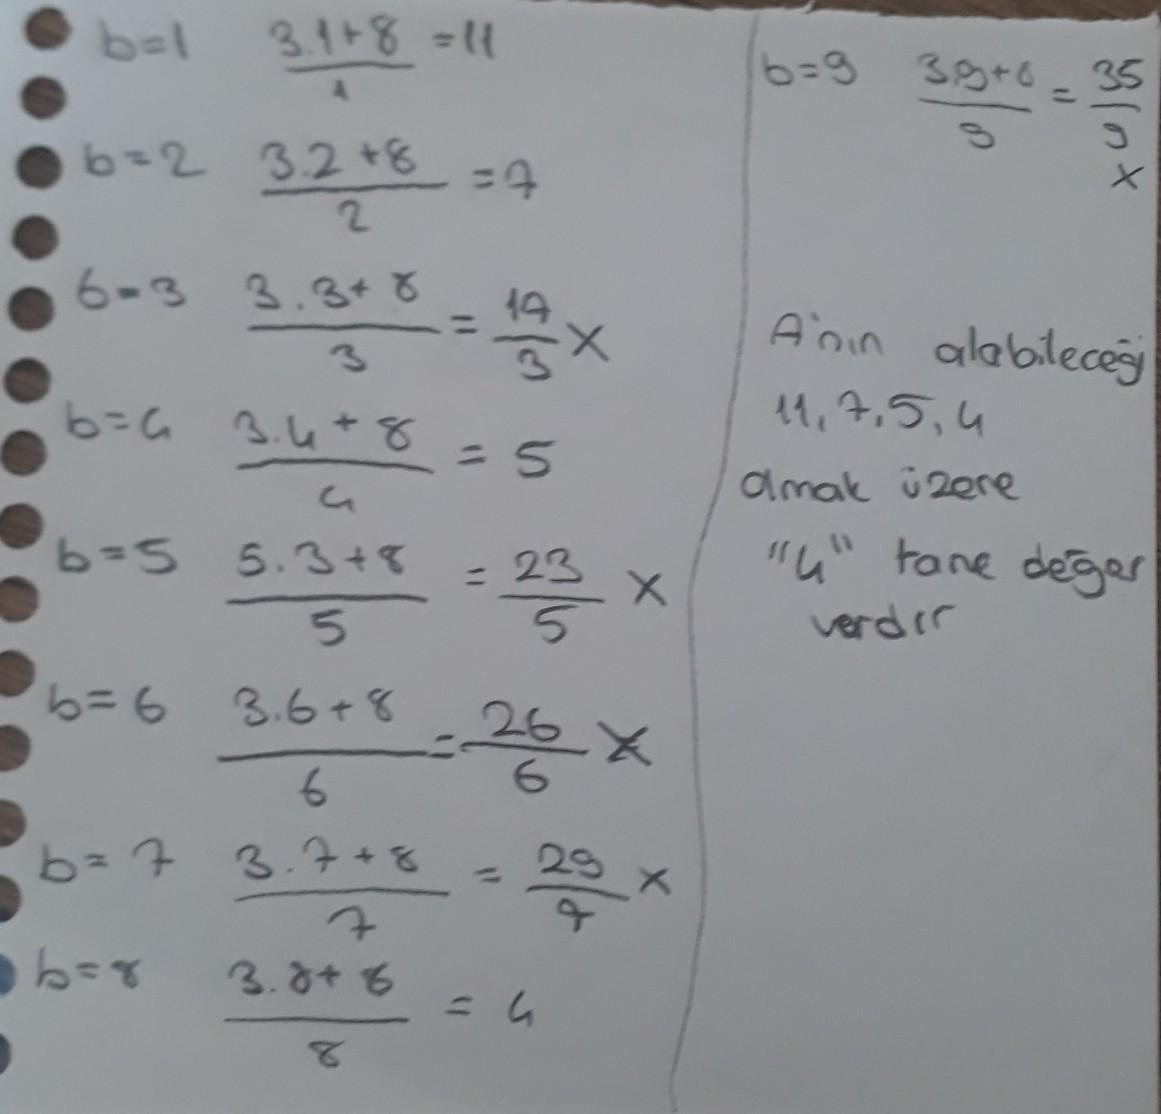 b=1 3.1+8/1 =11
b=2 3.2+8/2 =7
b=3 3.3+8/3 = 17/3 X
b=4 3.4+8/4 = 5
b=5 5.3+8/5 = 23/5 X
b=6 3.6+8/6 = 26/6 X
b=7 3.7+8/7 = 29/7 X
b=8 3.8+8/8 = 4
b=9 3.9+8/9 = 35/9
X
A'nın alabileceği
11, 7, 5, 4
olmak üzere
"4" tane değer
verdır